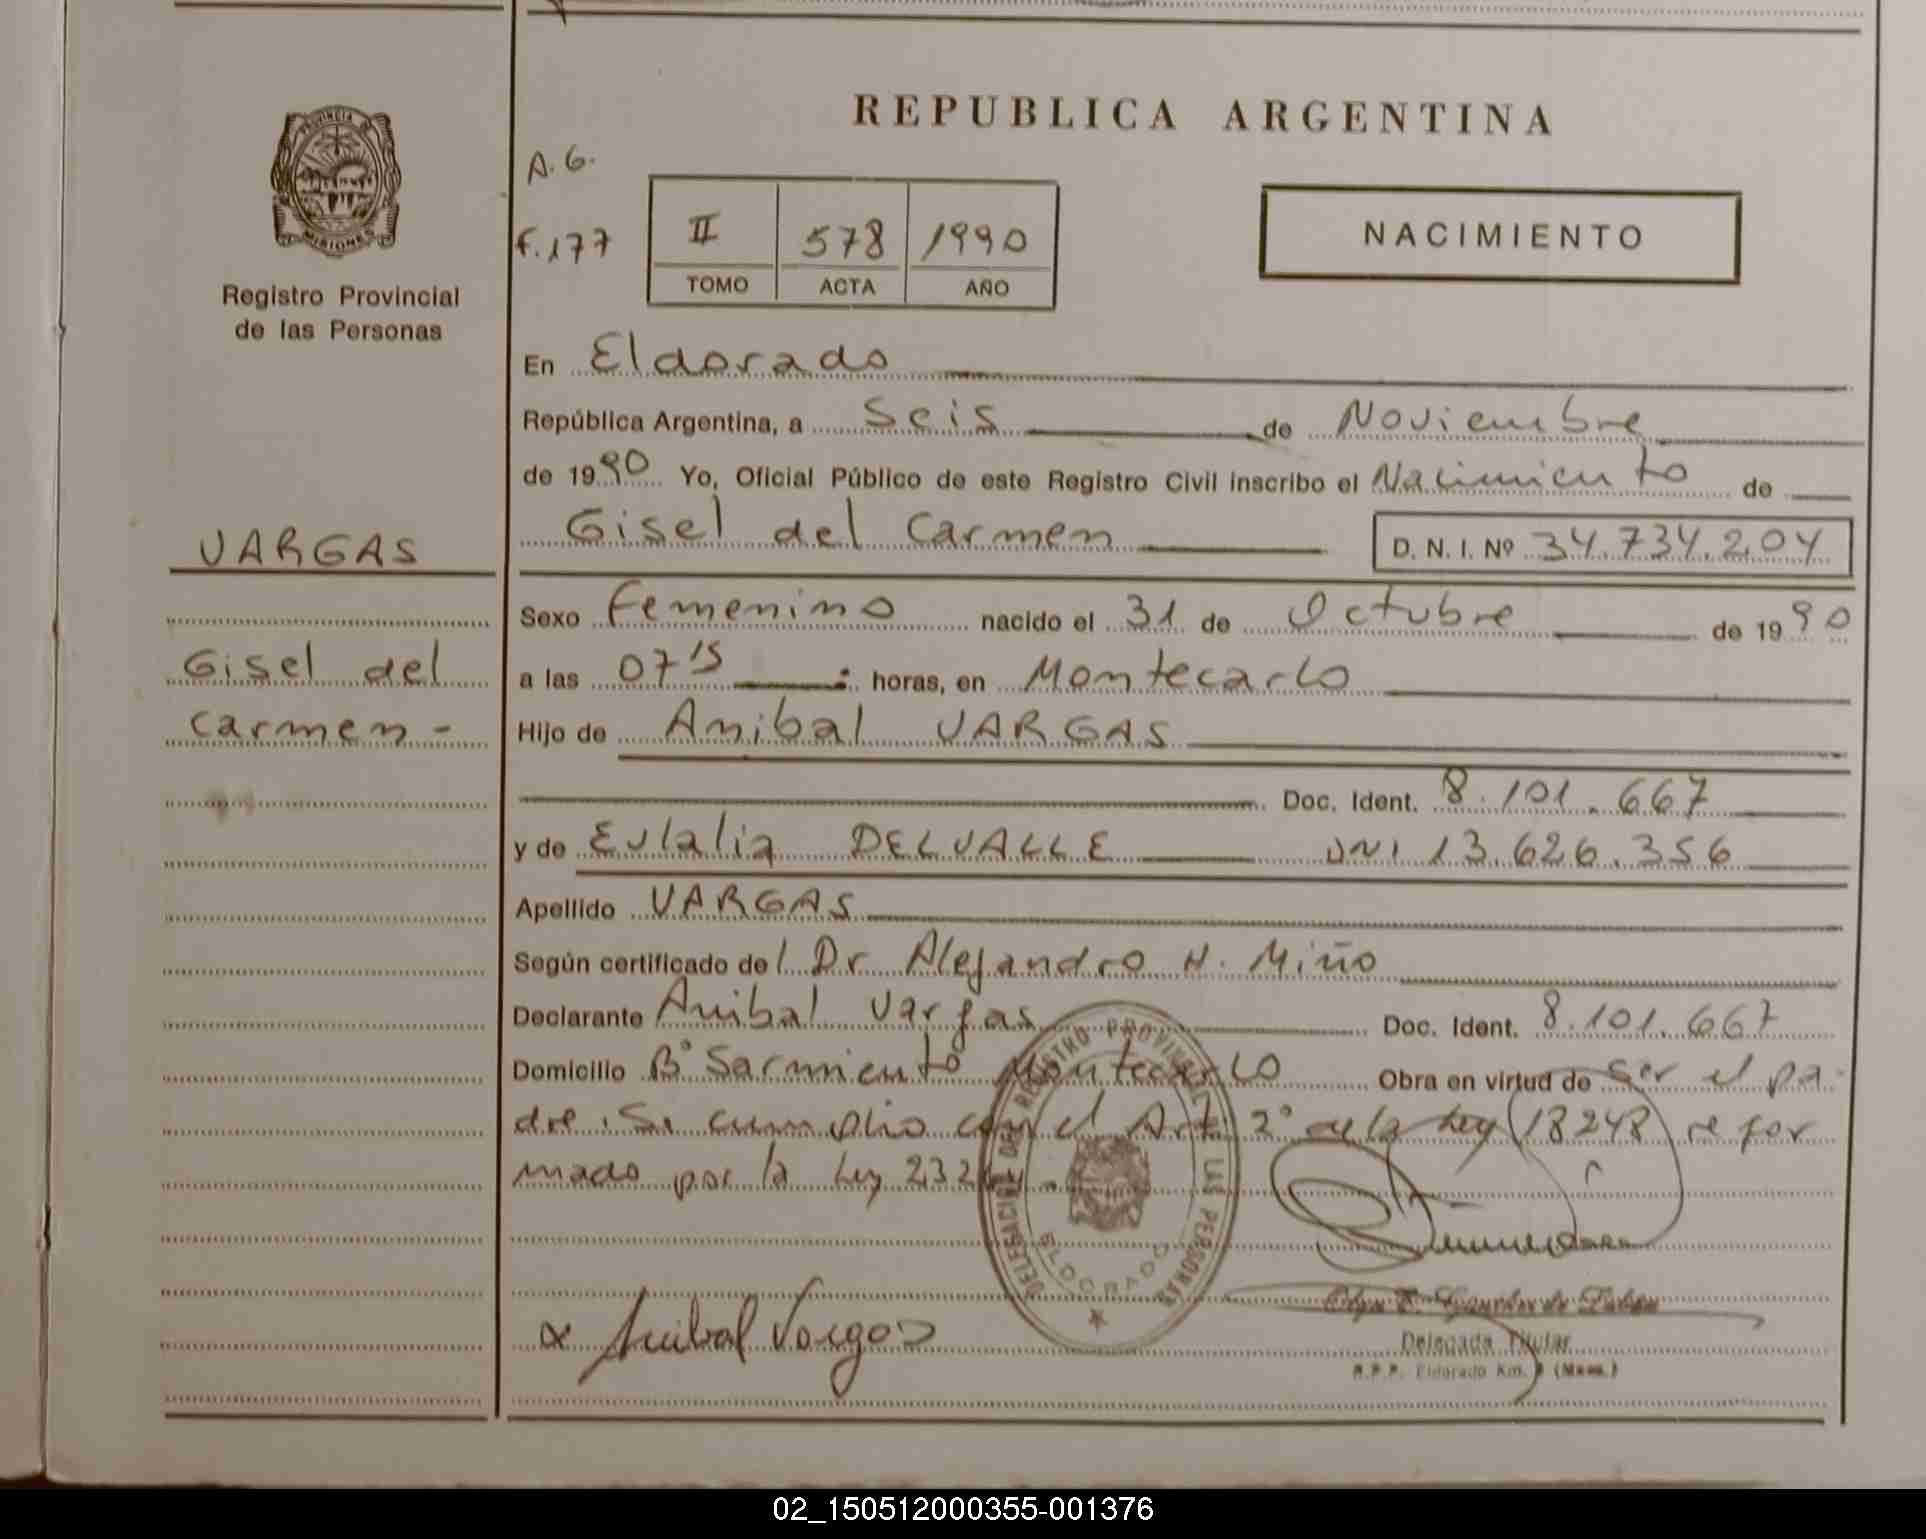 REPUBLICA ARGENTINA
PROVINCIA DE
MISIONES
Registro Provincial
de las Personas
A. G.
F. 177
II 578 1990
TOMO ACTA AÑO
NACIMIENTO
En Eldorado
República Argentina, a Seis de Noviembre
de 1990 Yo, Oficial Público de este Registro Civil inscribo el Nacimiento de
VARGAS
Gisel del Carmen D. N. I. Nº 34.734.204
Sexo Femenino nacido el 31 de Octubre de 1990
Gisel del
Carmen -
a las 07'15 horas, en Montecarlo
Hijo de Anibal VARGAS
Doc. Ident. 8.101.667
y de Eulalia DELVALLE DNI 13.626.356
Apellido VARGAS
Según certificado del Dr Alejandro H. Miño
Declarante Anibal Vargas Doc. Ident. 8.101.667
Domicilio Bº Sarmiento Montecarlo Obra en virtud de ser el pa-
dre. Se cumplio con el Art 2º de la Ley (18248) refor
mado por la Ley
DELEGACION DEL REGISTRO PROVINCIAL LAS PERSONAS
ELDORADO
x Anibal Vargas
Delegada Titular
R.P.P. Eldorado Km. (Mnes.)
02_150512000355-001376